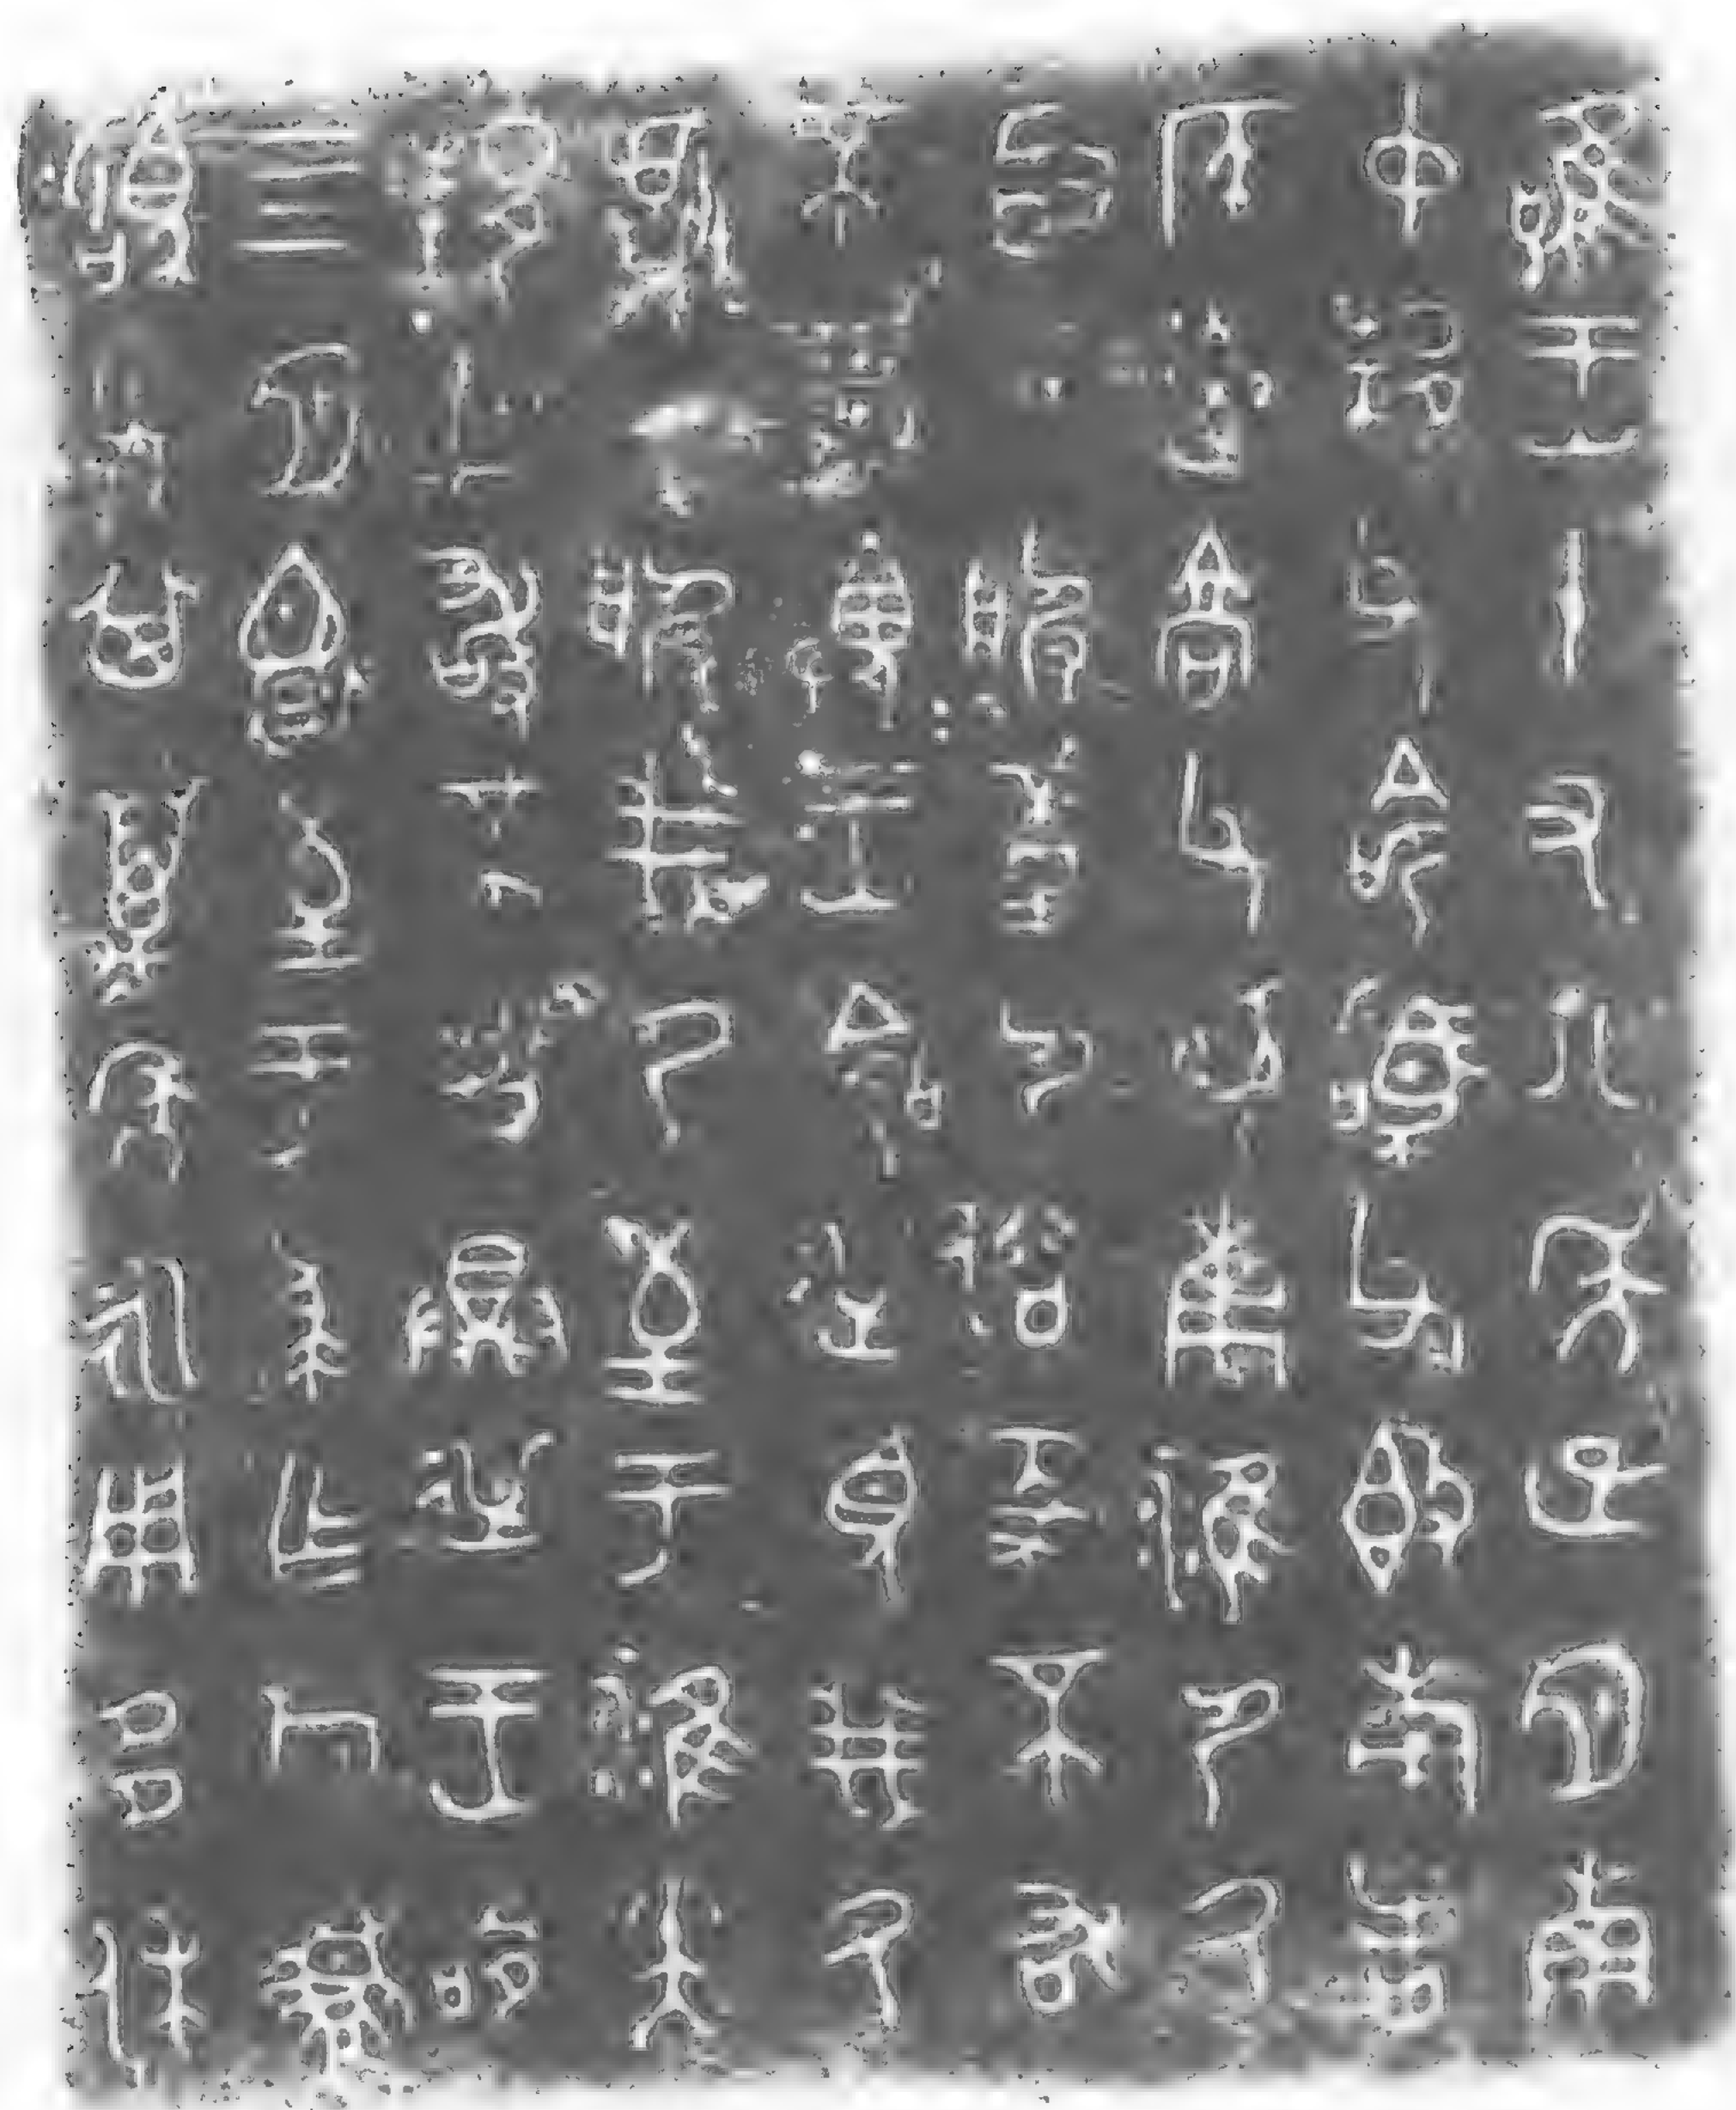 唯王十又八年正月南
中邦父命駒父即南者
侯率高父見南淮夷厥
取厥服堇夷俗豕不敢
不敬畏王命逆見我厥
獻厥服我乃至于淮小大
邦亡敢不具逆王命
四月還至于蔡乍旅盨
駒父其萬年永用多休